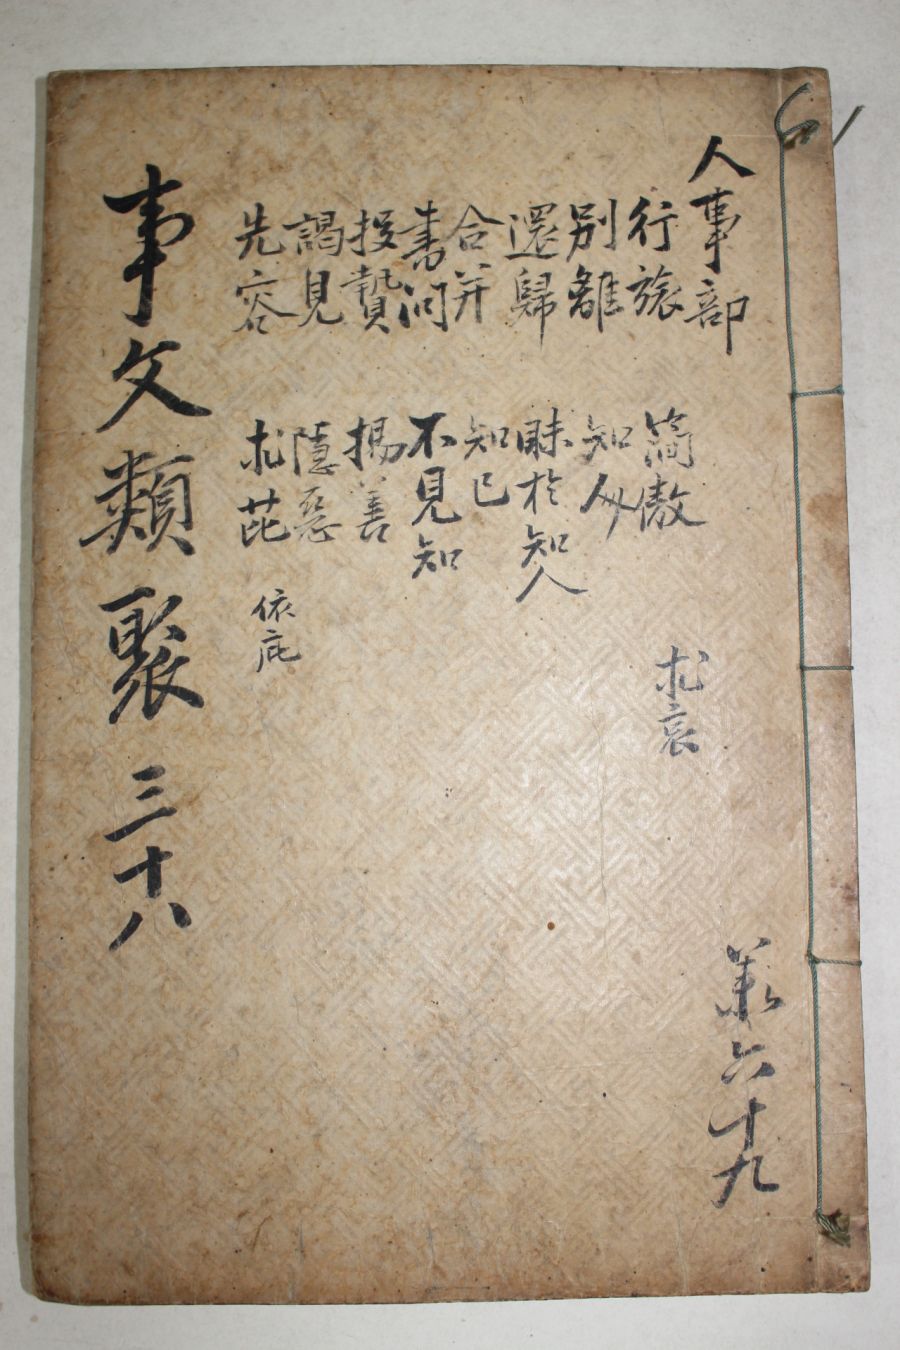 人事部
行旅
別離
還歸
合并
書問
投贄
謁見
先容
簡傲
求哀
知人
昧於知人
知己
不見知
揚善
隱惡
求芘
依庇
六十九
事文類聚 三十八